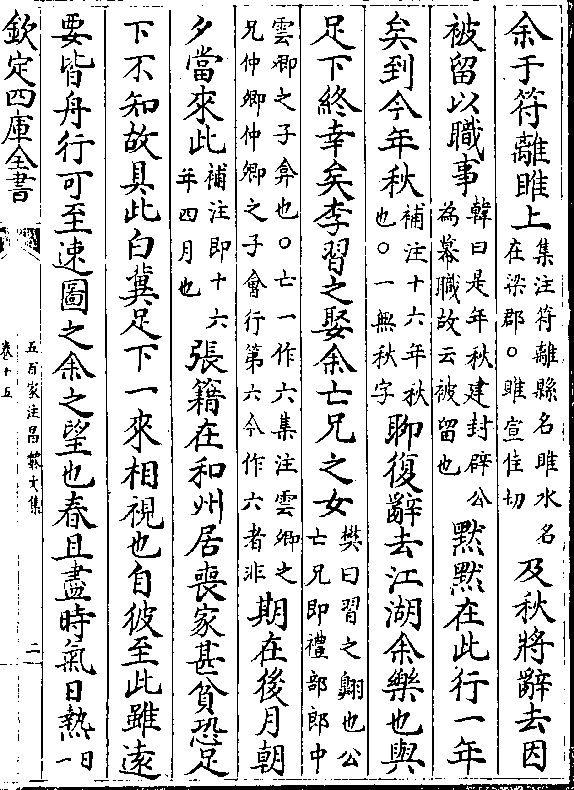 余于符離睢上集注符離縣名睢水名在梁郡○睢宣佳切及秋將辭去因
被留以職事韓曰是年秋建封辟公為幕職故云被留也默默在此行一年
矣到今年秋補注十六年秋也○一無秋字聊復辭去江湖余樂也與
足下終幸矣李習之娶余亡兄之女樊曰習之翺也公亡兄即禮部郎中
雲卿之子弇也○亡一作六集注雲卿之兄仲卿仲卿之子會行第六今作六者非期在後月朝
夕當來此補注即十六年四月也張籍在和州居喪家甚貧恐足
下不知故具此白冀足下一來相視也自彼至此雖遠
要皆舟行可至速圖之余之望也春且盡時氣日熱一日
欽定四庫全書
五百家注昌黎文集
卷十五
二